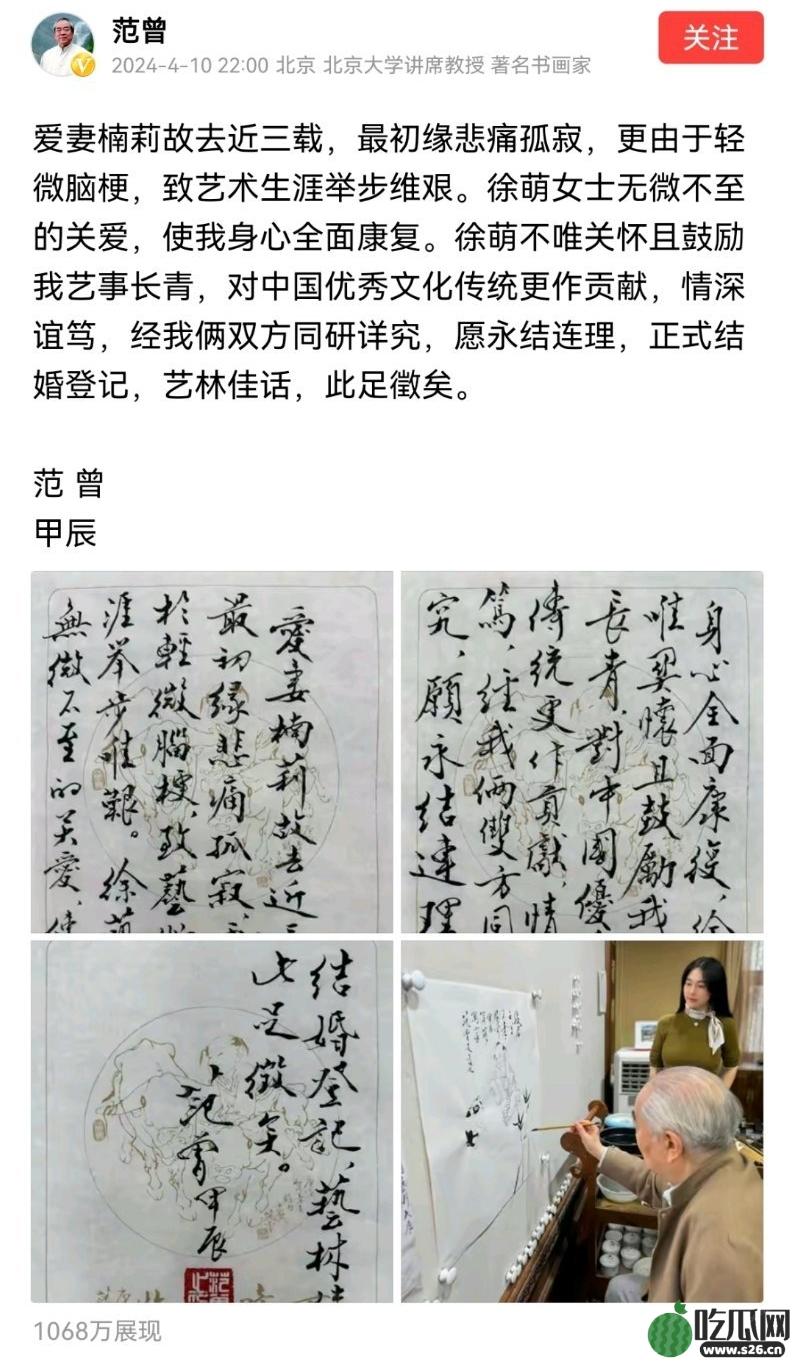 范曾
关注
2024-4-10 22:00 北京 北京大学讲席教授 著名书画家
爱妻楠莉故去近三载，最初缘悲痛孤寂，更由于轻
微脑梗，致艺术生涯举步维艰。徐萌女士无微不至
的关爱，使我身心全面康复。徐萌不唯关怀且鼓励
我艺事长青，对中国优秀文化传统更作贡献，情深
谊笃，经我俩双方同研详究，愿永结连理，正式结
婚登记，艺林佳话，此足徵矣。
范 曾
甲辰
愛妻楠莉故去近
最初缘悲痛孤寂，
於輕微腦梗，致藝
涯举步唯艱。徐萌
無微不至的关愛，使
身心全面康復，徐
唯関懷且鼓勵我
長青，對中國優
傳統更作貢獻，情
篤，經我倆雙方同
究，願永结連理
结婚登記，藝林佳
此足徵矣。
范曾甲辰
1068万展现
吃瓜网
www.s26.cn